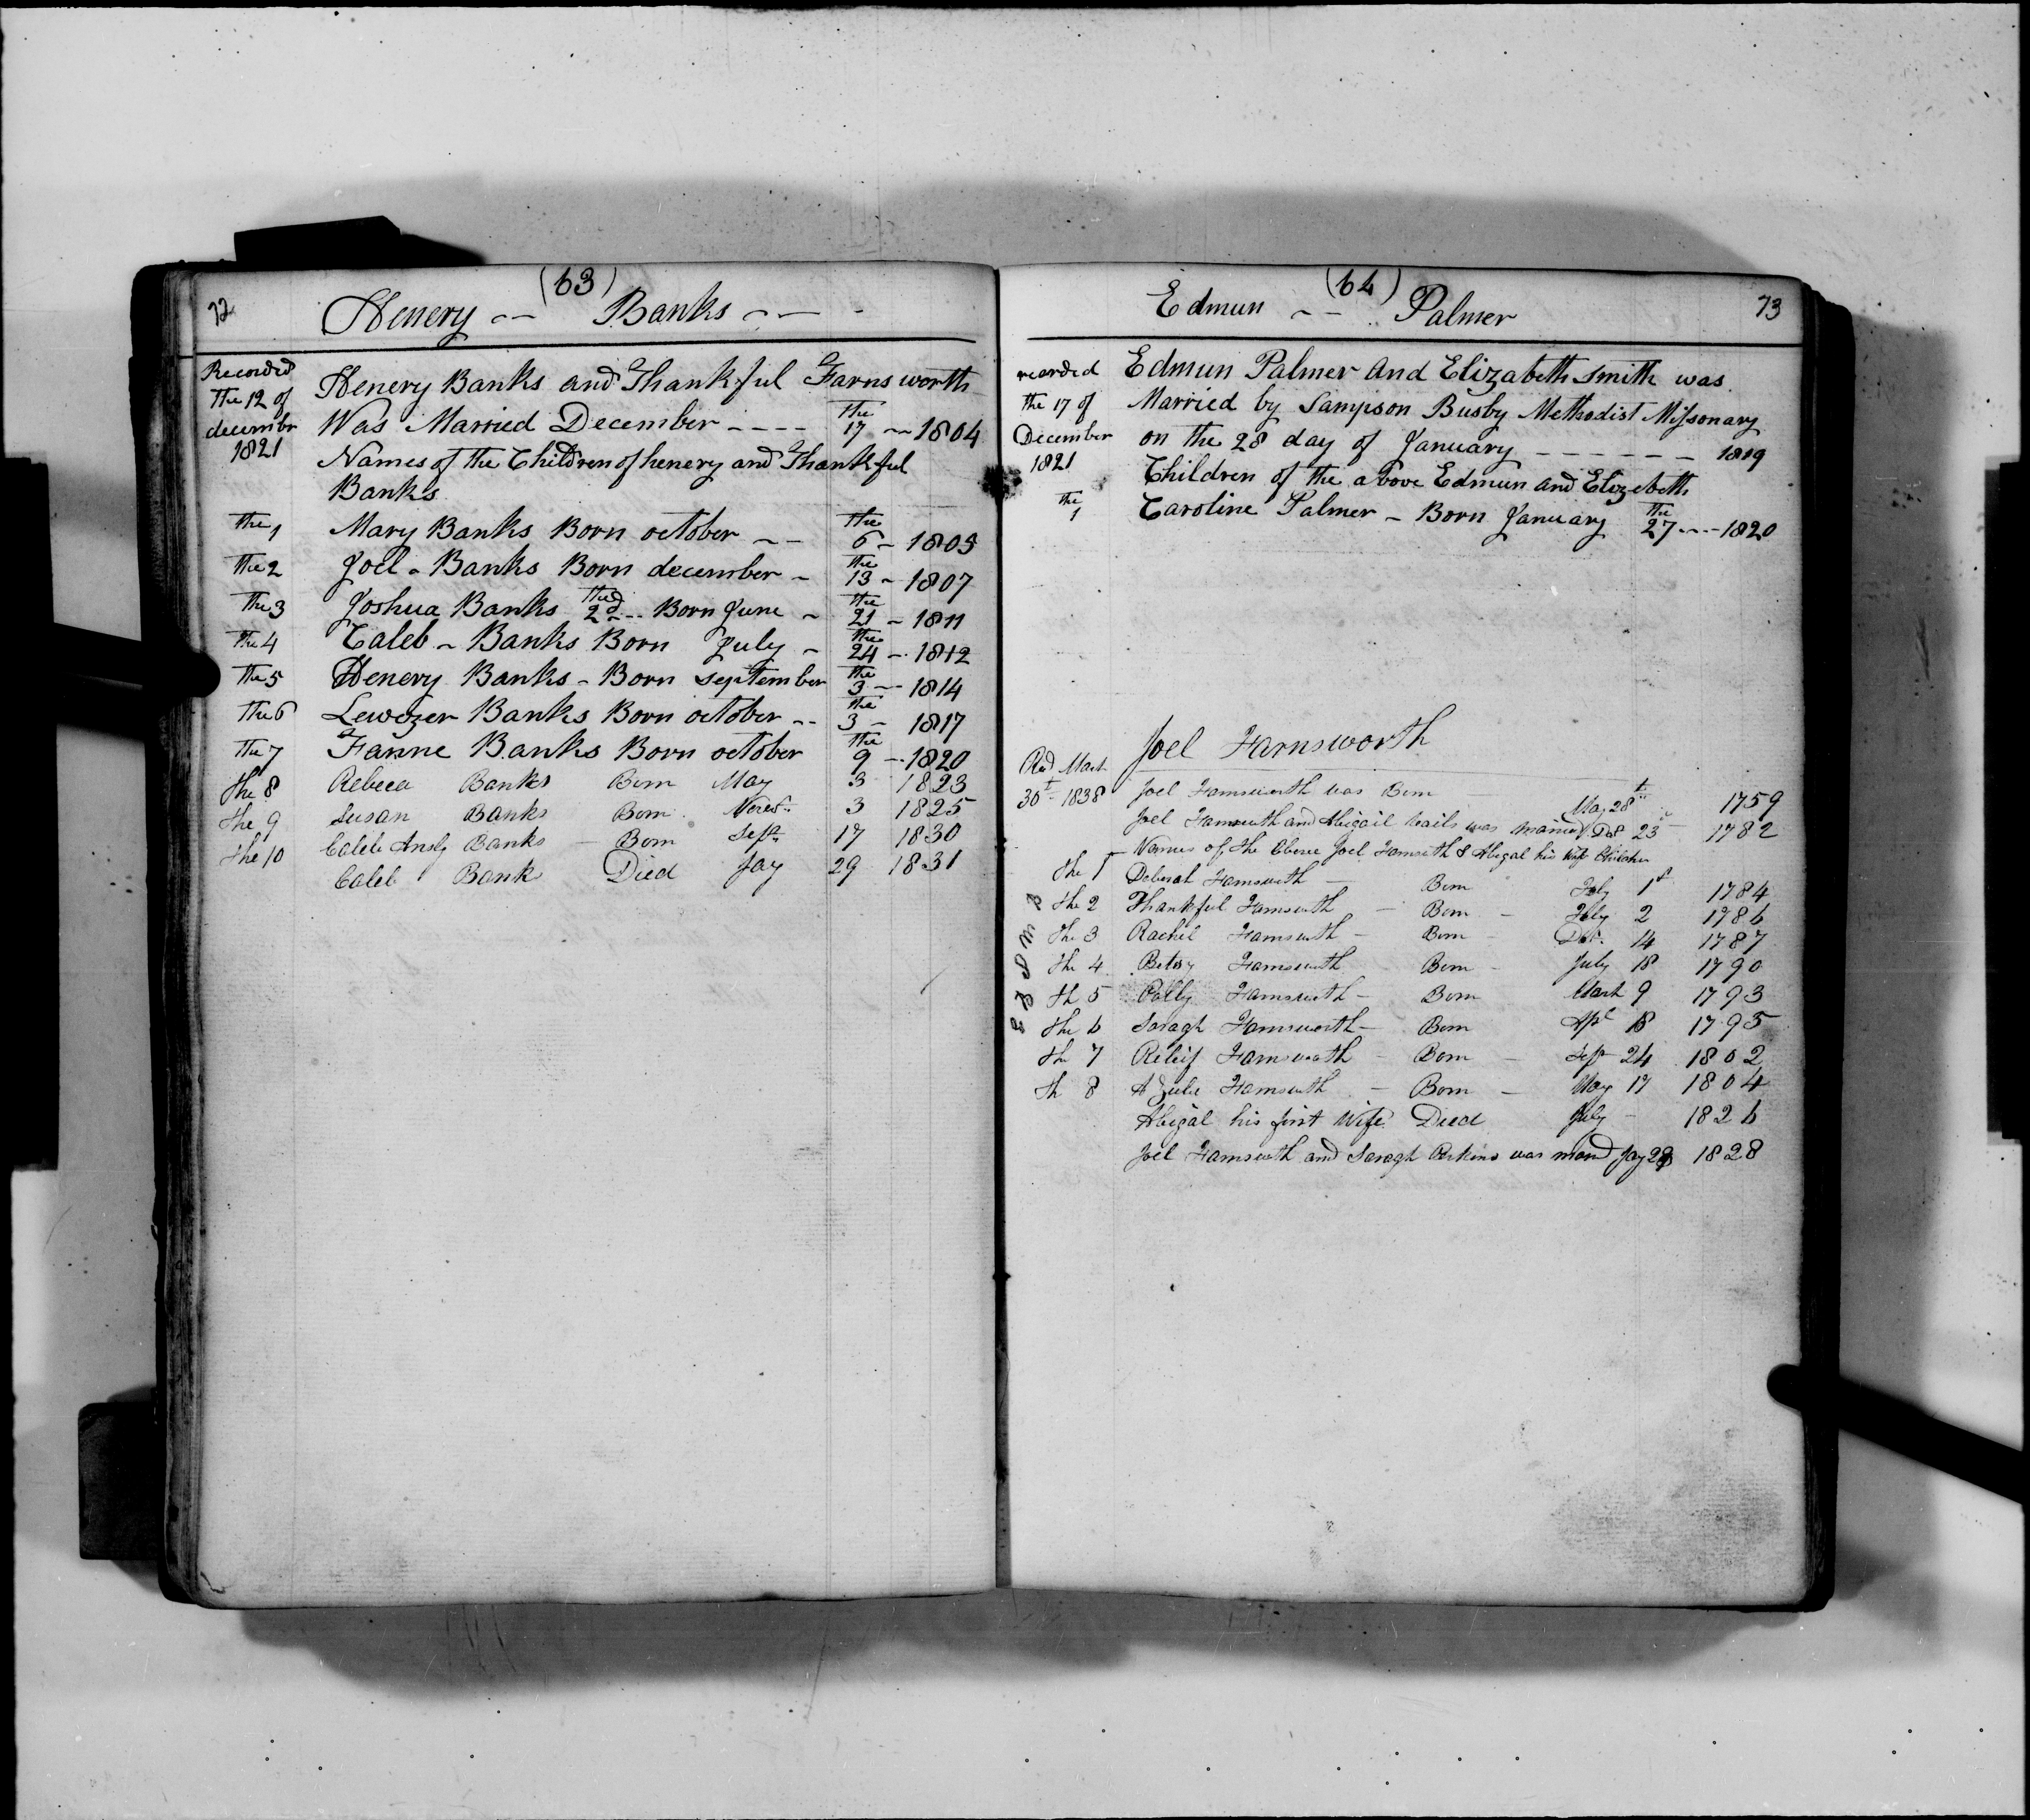 (63)
72 Henery -- Banks ---
Recorded the 12 of decembr 1821
Henery Banks and Thankful Farnsworth
Was Married December ---- the 17 -- 1804
Names of the Children of henery and Thankful
Banks
the 1 Mary Banks Born october -- the 6 - 1805
the 2 Joel - Banks Born december - the 13 - 1807
the 3 Joshua Banks the 2d -- Born June - the 21 - 1811
the 4 Caleb - Banks Born July - the 24 -- 1812
the 5 Henery Banks - Born september the 3 -- 1814
the 6 Lewezer Banks Born october -- the 3 - 1817
the 7 Fanne Banks Born october the 9 -- 1820
the 8 Rebeca Banks Born May 3 1823
the 9 Susan Banks Born 3 1825
the 10 Caleb Ansly Banks - Born Sept 17 1830
Caleb Banks Died Jay 29 1831
(64)
Edmun -- Palmer 73
recorded the 17 of December 1821
Edmun Palmer And Elizabeth Smith was
Married by Sampson Busby Methodist Missonary
on the 28 day of January ------ 1819
Children of the above Edmun and Elizebeth
the 1 Caroline Palmer - Born January the 27 --- 1820
Joel Farnsworth
Recd March 30t 1838
Joel Farnsworth was Born May 28th 1759
Joel Farnsworth and Abigail was married 23 1782
Names of the Above Joel Farnsworth & Abigal his wife Children
the 1 Deborah Farnsworth - Born July 1st 1784
the 2 Thankful Farnsworth - Born - July 2 1786
the 3 Rachel Farnsworth - Born Dec. 14 1787
the 4 Betsy Farnsworth Born - July 18 1790
th 5 Polly Farnsworth - Born March 9 1793
the 6 Saragh Farnsworth - Born Apl 18 1795
th 7 Farnsworth - Born - Sep 24 1802
th 8 Farnsworth - Born - May 17 1804
Abigal his first Wife Died July - 1826
Joel Farnsworth and Saragh Perkins was mard Jay 28 1828